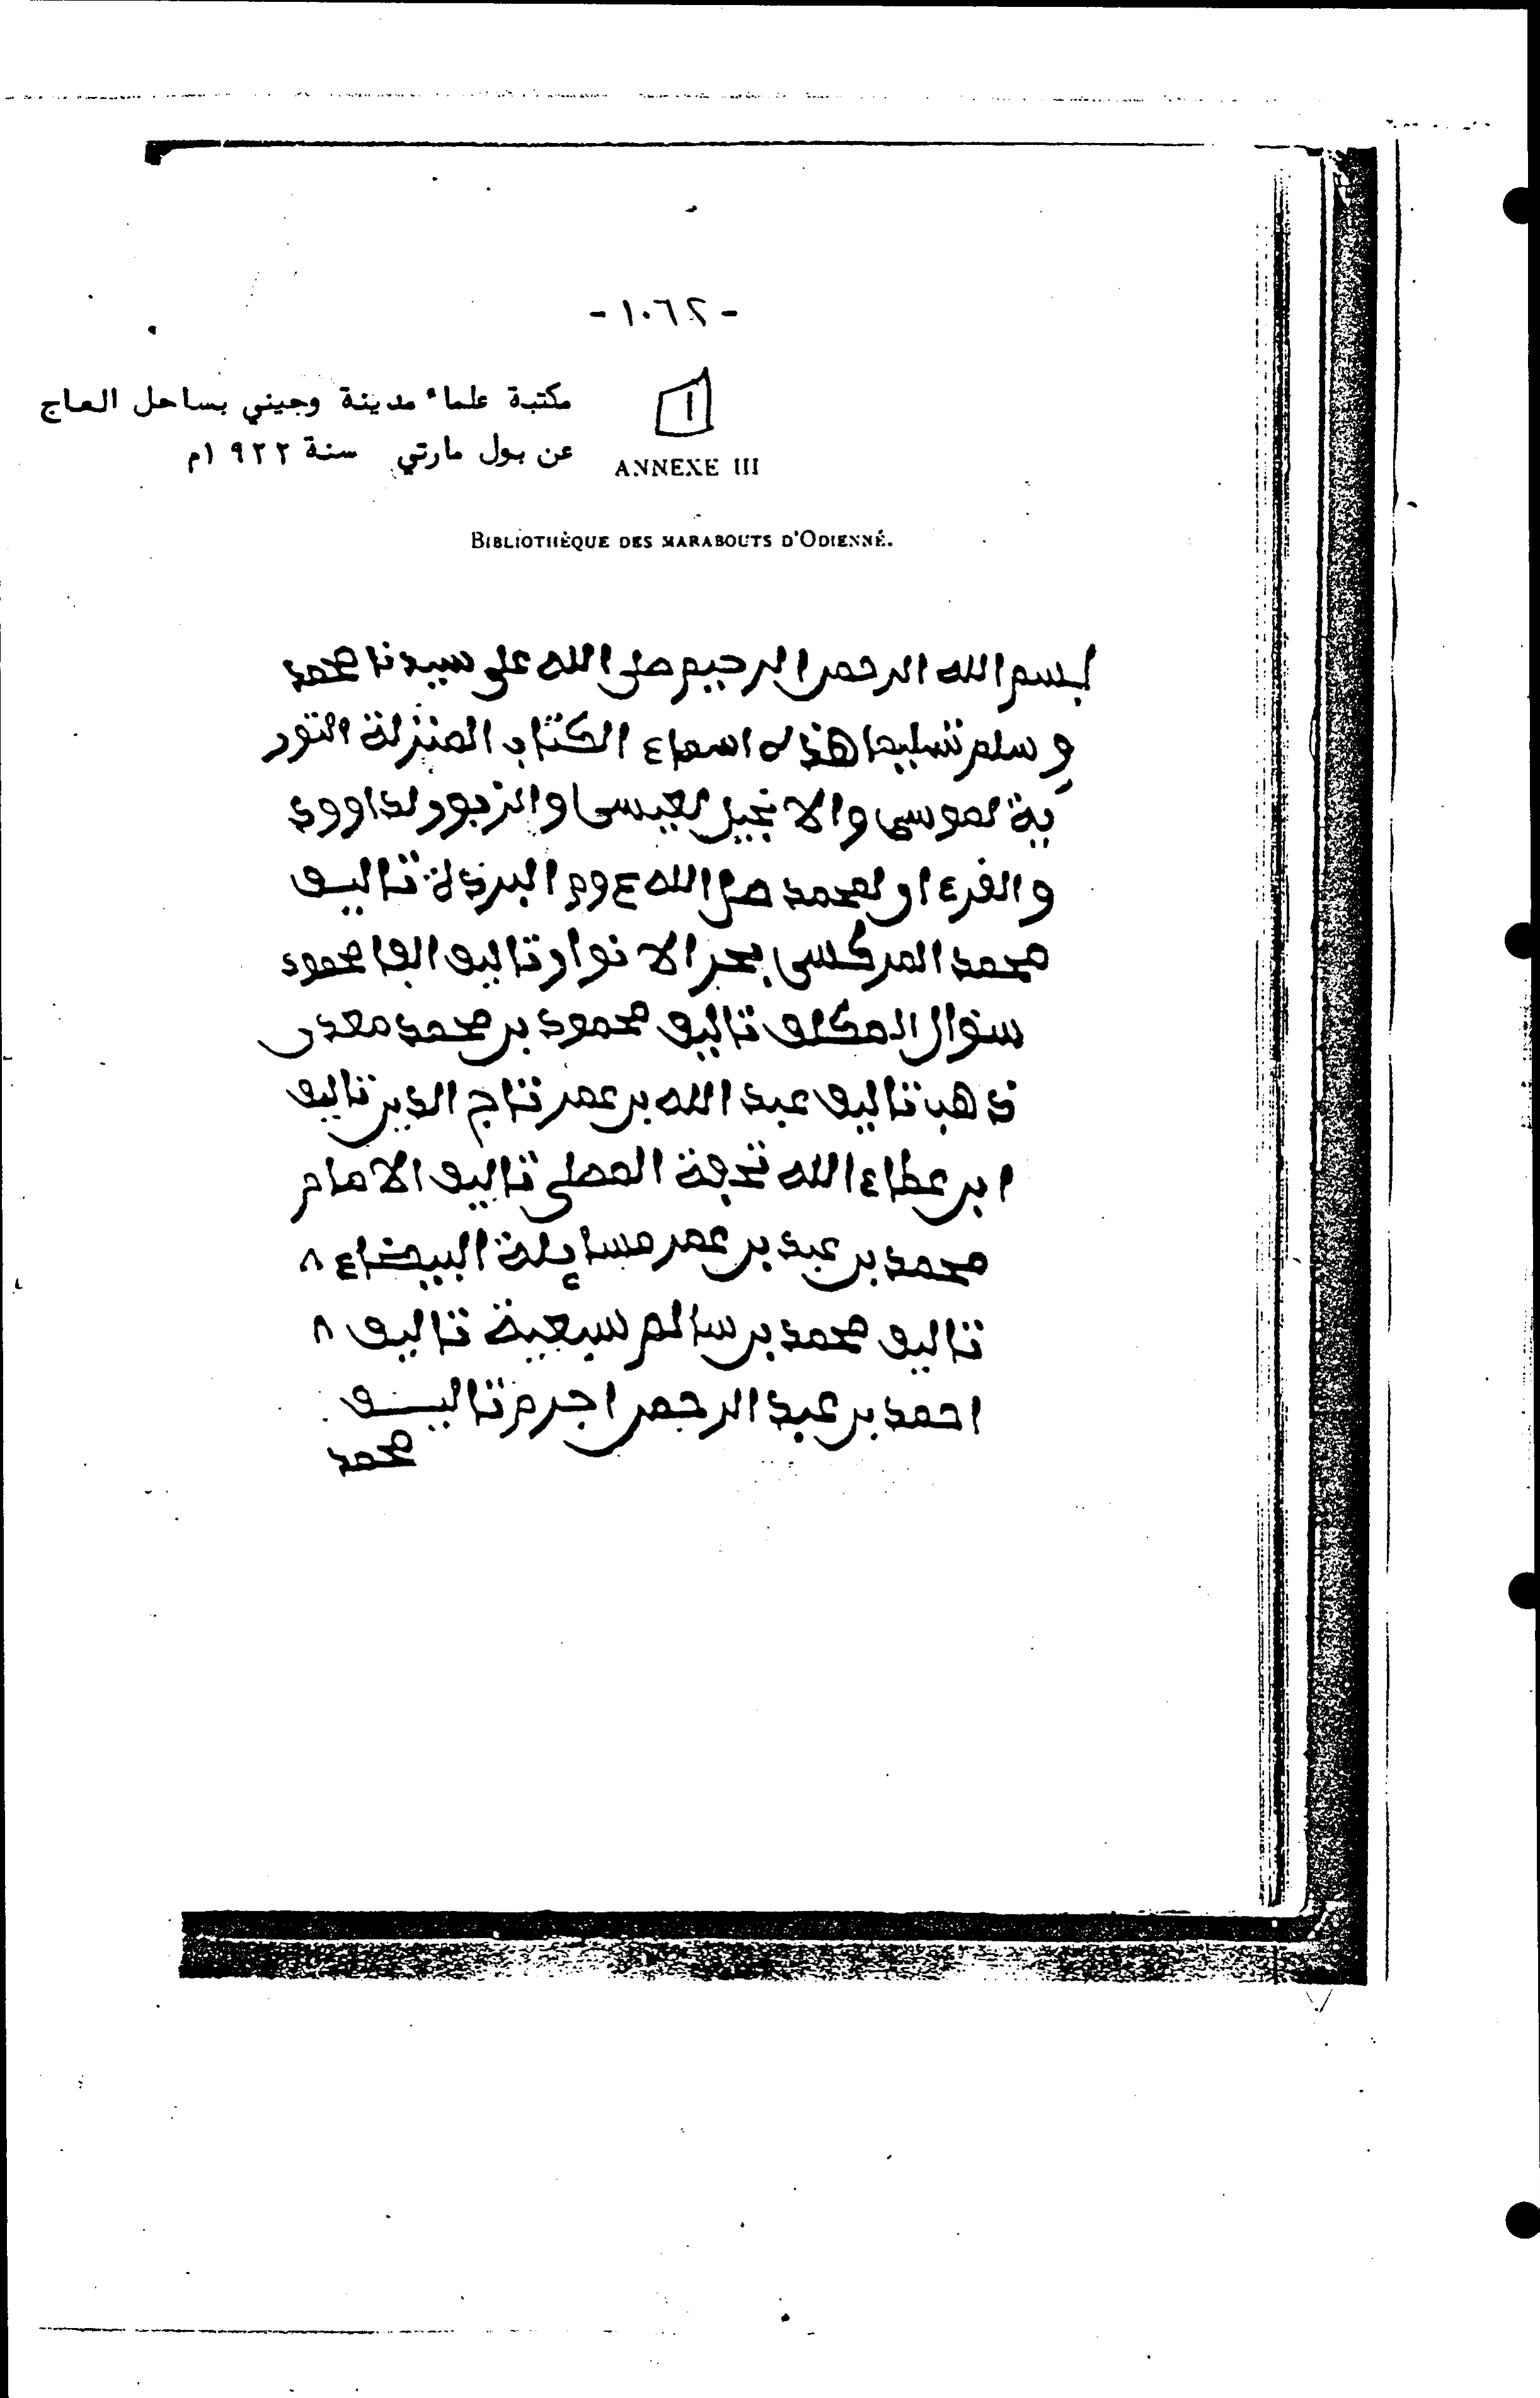 - ١٠٦٢ -
١
مكتبة علماء مدينة وجيني بساحل العاج
عن بول مارتي سنة ١٩٢٢م
ANNEXE III
BIBLIOTHÈQUE DES MARABOUTS D'ODIENNÉ.
بسم الله الرحمن الرحيم صلى الله على سيدنا محمد
و سلم تسليما هذه اسماء الكتاب المنزلة التور
ية لموسى والانجيل لعيسى والزبور لداوود
والفرءان لمحمد صلى الله ع وم البردة تاليف
محمد المركسى بحر الانوار تاليف الفا محمود
سنوال المكلف تاليف محمود بن محمد معدن
ذهب تاليف عبد الله بن عمر تاج الدين تاليف
ابن عطاء الله تحفة المصلى تاليف الامام
محمد بن عبد بن عمر مسايلة البيضاء
تاليف محمد بن سالم سبعية تاليف
احمد بن عبد الرحمن اجرم تاليف
محمد